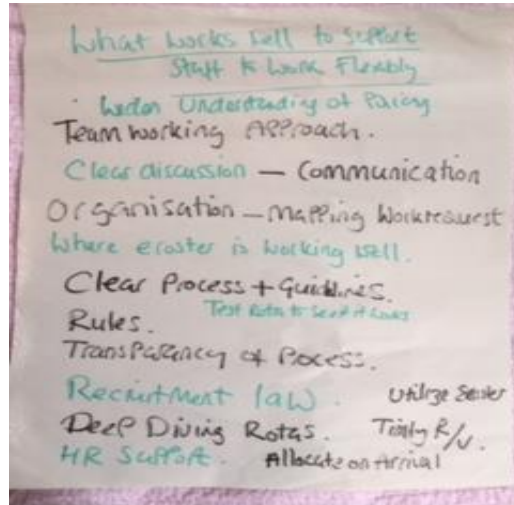 What works well to support
Staff to work Flexibly
Understanding of
Team working Approach.
Clear discussion — Communication
Organisation — Mapping Work request
Where eroster is working well.
Clear Process + Guidelines.
Test Rota to see it works
Rules.
Transparency of Process.
Recruitment law.
Utilize
Deep Diving Rotas.
Timely R/V.
HR Support.
Allocate on Arrival